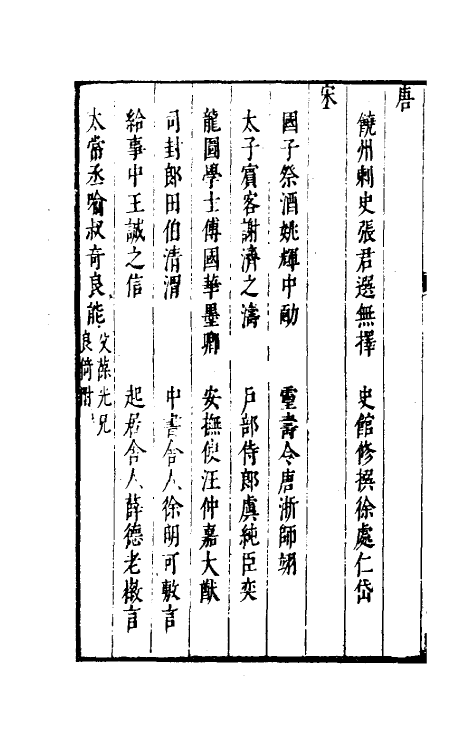 唐
饒州刺史張君選無擇 史館修撰徐處仁岱
宋
國子祭酒姚輝中勔 靈壽令唐浙師翊
太子賓客謝濟之濤 戶部侍郎虞純臣奕
龍圖學士傅國華墨卿 安撫使汪仲嘉大猷
司封郎田伯清渭 中書舍人徐明可敷言
給事中王誠之信 起居舍人薛德老徽言
太常丞喻叔奇良能 父葆光兄
良倚附